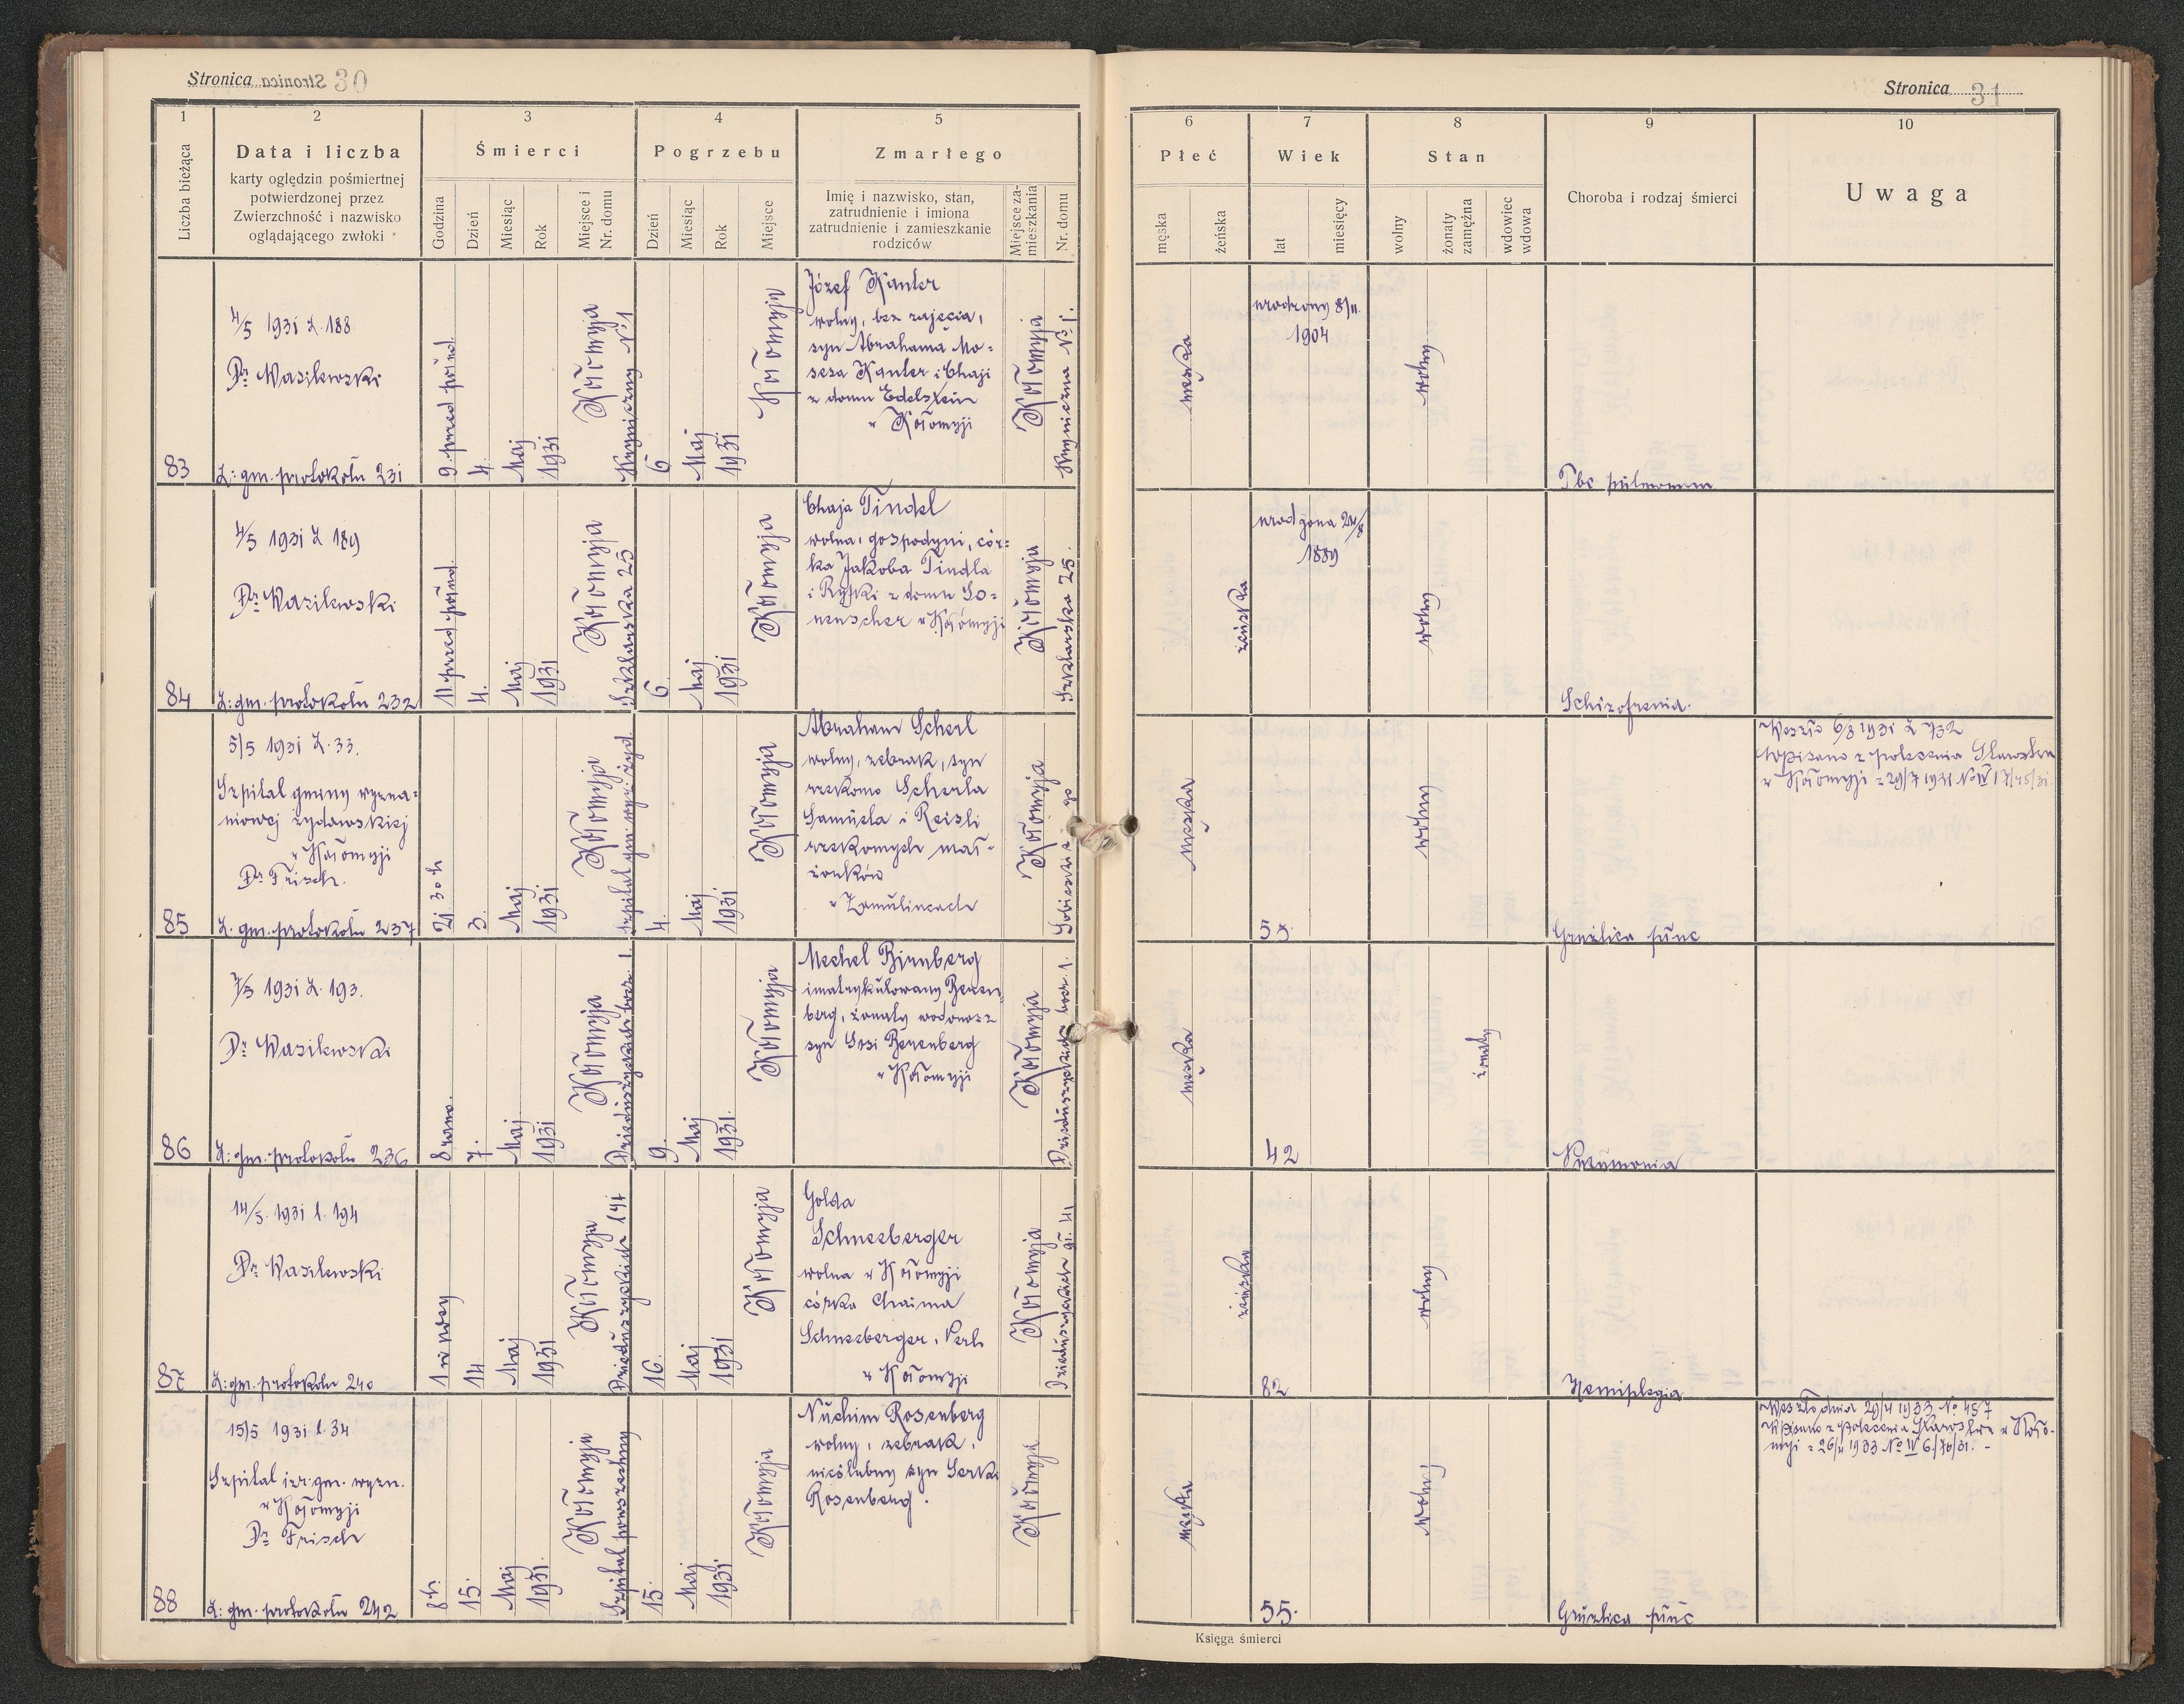 Stronica 30
1
2
3
4
5
Liczba bieżąca
Data i liczba
karty oględzin pośmiertnej
potwierdzonej przez
Zwierzchność i nazwisko
oglądającego zwłoki
Śmierci
Godzina
Dzień
Miesiąc
Rok
Miejsce i
Nr. domu
Pogrzebu
Dzień
Miesiąc
Rok
Miejsce
Zmarłego
Imię i nazwisko, stan,
zatrudnienie i imiona
zatrudnienie i zamieszkanie
rodziców
Miejsce za-
mieszkania
Nr. domu
83
4/5 1931 L. 188
Dr. Wasilewski
L: gm. protokołu 231
9. przed połud.
4.
Maj
1931
Kołomyja
N° 1
6
Maj
1931
Kołomyja
Józef Kanter
wolny, bez zajęcia,
syn Abrahama Mo-
sesa Kanter i Chaji
z domu Edelstein
w Kołomyji
Kołomyja
N° 1.
84
4/5 1931 L 189
Dr. Wasilewski
L: gm. protokołu 232
11 przed połud.
4.
Maj
1931
Kołomyja
Szklarska 25
6.
Maj
1931
Kołomyja
Chaja Tindel
wolna, gospodyni, cór-
ka Jakoba Tindla
i Ryfki z domu So-
nenscher w Kołomyji
Kołomyja
Szklarska 25.
85
5/5 1931 L. 33.
Szpital gminy wyzna-
niowej żydowskiej
w Kołomyji
Dr. Frisch.
L. gm. protokołu 237
21 30 h
3.
Maj
1931
Kołomyja
szpital gm. wyz. żyd.
4.
Maj
1931
Kołomyja
Abraham Scherl
wolny, żebrak, syn
rzekomo Scherla
Samuela i Reisli
rzekomych mał-
żonków
w Zamulincach
Kołomyja
86
7/5 1931 L. 193.
Dr. Wasilewski
L: gm. protokołu 236
8 rano.
7.
Maj
1931
Kołomyja
Dzieduszyckich bocz. 1
9.
Maj
1931.
Kołomyja
Mechel Birnberg
imatrykulowany Beren-
berg, żonaty wodonosz
syn Berenberg
w Kołomyji
Kołomyja
Dzieduszyckich bocz. 1.
87
14/5. 1931 l. 194
Dr. Wasilewski
L: gm. protokołu 240
1 w nocy
14
Maj
1931
Kołomyja
Dzieduszyckich 141
16.
Maj
1931
Kołomyja
Golda
Schneeberger
wolna w Kołomyji
córka Chaima
Schneeberger i Perli
w Kołomyji
Kołomyja
Dzieduszyckich
88
15/5 1931 l. 34
Szpital izr. gm. wyzn.
w Kołomyji
Dr Frisch
L: gm. protokołu 242
8 h.
15.
Maj
1931.
Kołomyja
Szpital powszechny
15.
Maj
1931
Kołomyja
Nuchim Rosenberg
wolny, żebrak,
nieślubny syn Serki
Rosenberg.
Kołomyja
Stronica 31
6
7
8
9
10
Płeć
męska
żeńska
Wiek
lat
miesięcy
Stan
wolny
żonaty
zamężna
wdowiec
wdowa
Choroba i rodzaj śmierci
Uwaga
męska
urodzony 8/11.
1904
wolny
Tbc pulmonum
żeńska
urodzona 24/8
1889
wolny
Schizofrenia.
męska
55.
wolny
Gruźlica płuc
Weszło 6/8 1931 L 732
wpisano z polecenia Starostwa
w Kołomyji z 29/7 1931
męska
42
żonaty
Pneumonia
żeńska
82
wolny
Hemiplegia
męska
55.
wolny
Gruźlica płuc
Weszło dnia 29/4 1933 N° 457
wpisano z polecenia Starostwa w Koło-
myji z 26/4 1933 N° IV 6/76/31. -
Księga śmierci